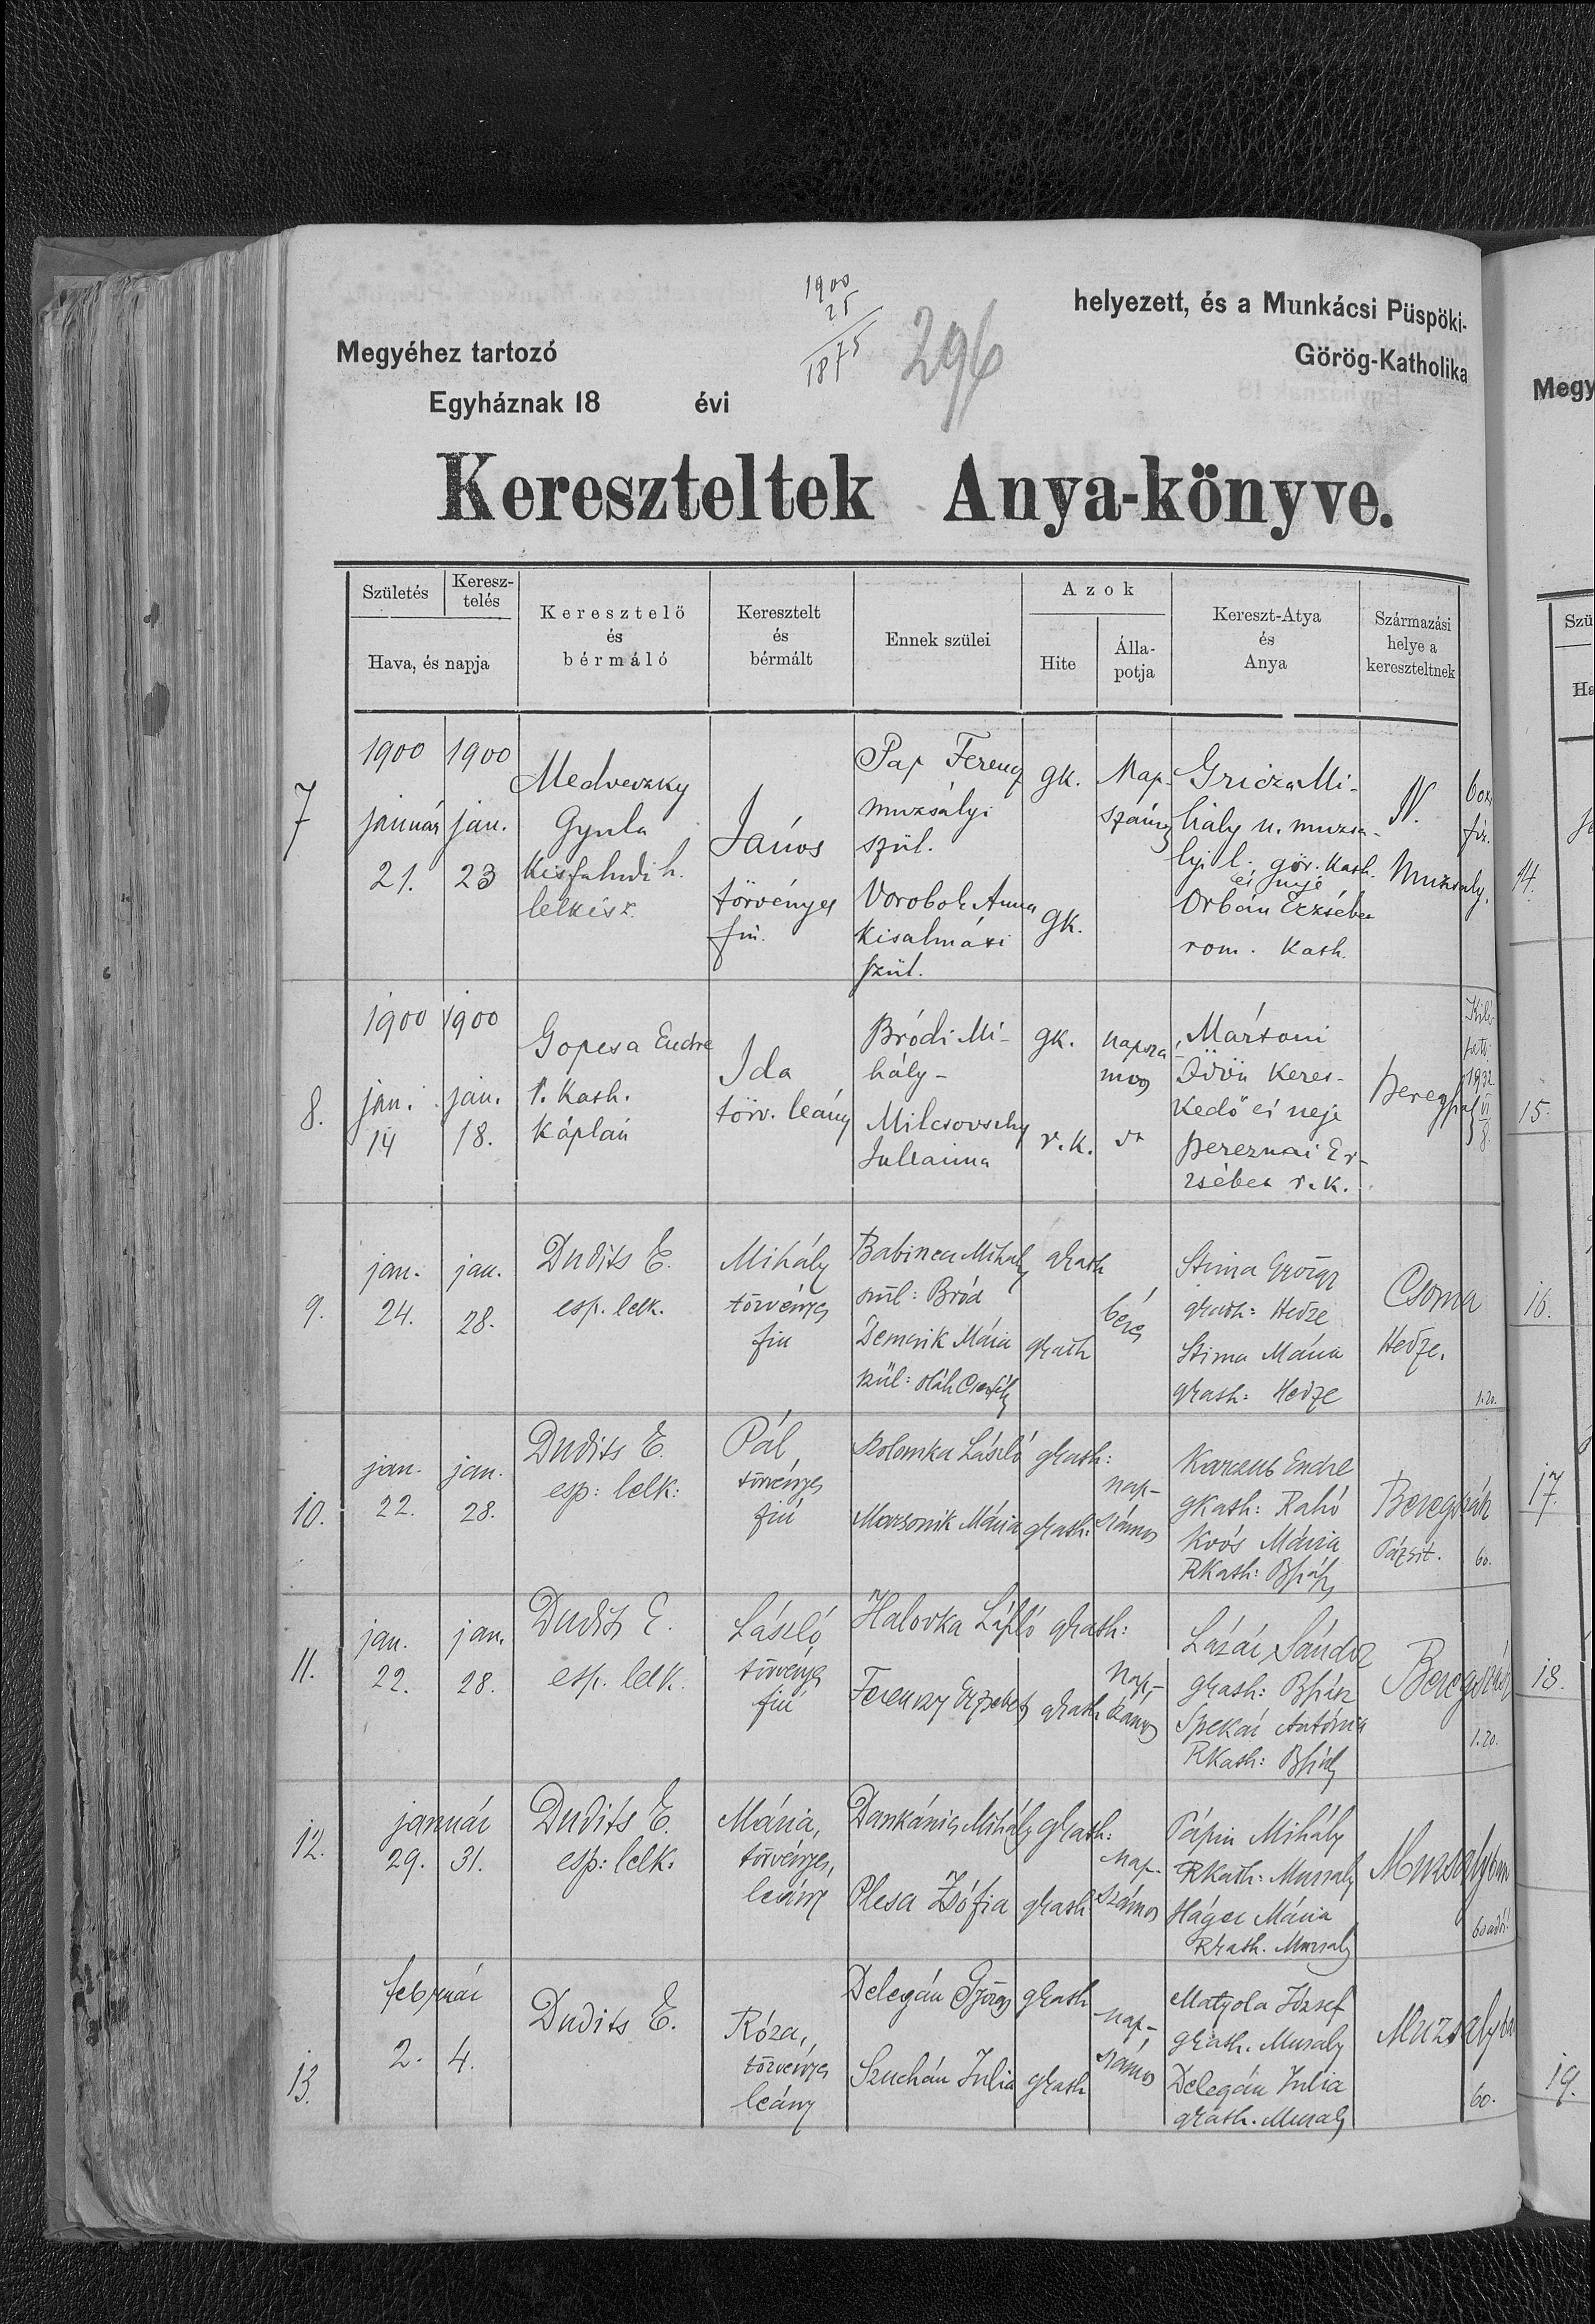 1900
25
1875
296
helyezett, és a Munkácsi Püspöki-
Megyéhez tartozó
Görög-Katholika
Egyháznak 18 évi
Megy
Kereszteltek Anya-könyve.
Születés
Keresz-
telés
Hava, és napja
Keresztelő
és
bérmáló
Keresztelt
és
bérmált
Ennek szülei
Azok
Hite
Álla-
potja
Kereszt-Atya
és
Anya
Származási
helye a
kereszteltnek
7
1900
január
21.
1900
jan.
23
Medveczky
Gyula
lelkész.
János
törvényes
fiú.
Pap Ferencz
muzsályi
szül.
Vorobok Anna
kisalmási
szül.
gk.
gk.
Nap-
számos
Gricza Mi-
hály n. muzsa-
lyi l. gör. Kath.
és neje
Orbán Erzsébet
rom. Kath.
N.
Muzsaly.
8.
1900
jan.
14
1900
jan.
18.
Gopcsa Endre
r. Kath.
Káplán
Ida
törv. leány
Bródi Mi-
hály-
Milcsovszky
Julianna
gk.
r.k.
napszá-
mos
Mártoni
Ödön Keres-
kedő és neje
Bereznai Er-
zsébet r.k.
Beregsz
1932
9.
jan.
24.
jan.
28.
Dudits E.
esp. lelk.
Mihály
törvényes
fiu
Babinca Mihály
szül: Bród
Demcsik Mária
szül: oláh
gkath
gkath
béres
Stima György
gkath: Hetze
Stima Mária
gkath: Hetze
Csoma
Hetze.
1.20.
10.
jan.
22.
jan.
28.
Dudits E.
esp: lelk:
Pál
törvényes
fiú
Kolomka László
Marsonik Mária
gkath:
gkath:
nap-
számos
Endre
gKath: Rahó
Koós Mária
RKath: Bszász
Beregszász
Pázsit.
60.
11.
jan.
22.
jan.
28.
Dudits E.
esp. lelk.
László
törvényes
fiú
Halovka László
Ferenczy Erzsébet
gkath:
gkath
Nap-
számos
Lázár Sándor
gkath: Bszász
Spekár Antónia
RKath: Bszász
Beregszász
1.20.
12.
január
29. 31.
Dudits E.
esp: lelk.
Mária,
törvényes,
leány
Dankánics Mihály
Plesa Zsófia
gkath:
gkath
nap-
számos
Pápin Mihály
RKath: Muzsaly
Háger Mária
Rkath. Muzsaly
Muzsalyban
13.
február
2. 4.
Dudits E.
Róza,
törvényes
leány
Delegán György
Szuchán Julia
gkath
gkath
nap-
számos
Matyola József
gkath. Musaly
Delegán Julia
gkath. Musaly
Muzsalyba
60.
14.
15.
16.
17.
18.
19.